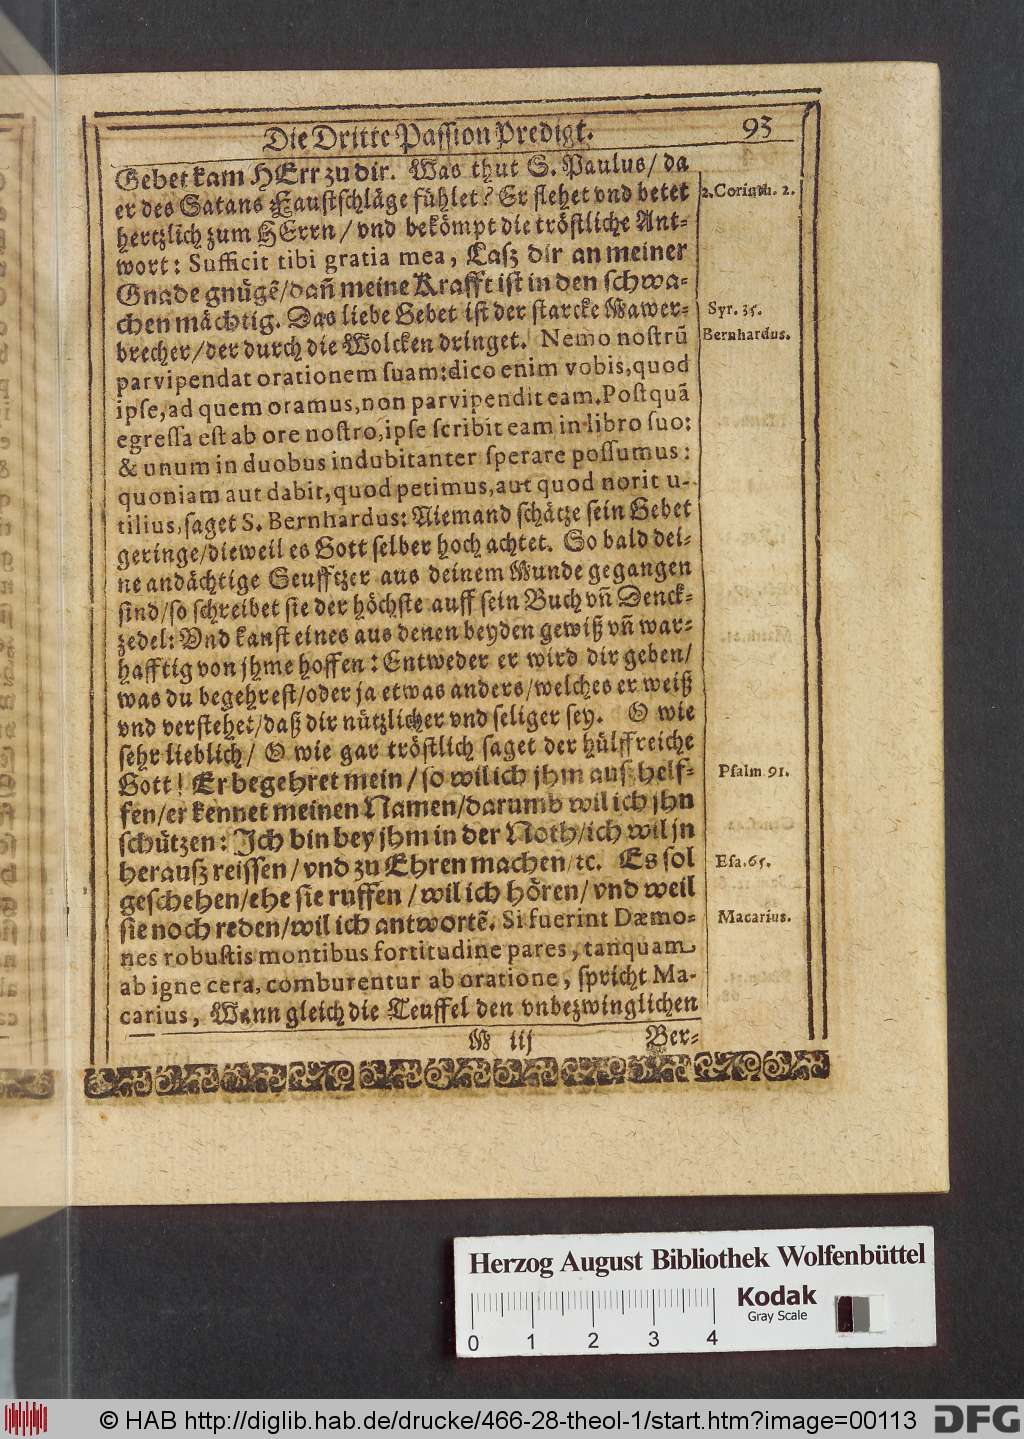 Die Dritte Passion Predigt. 93
Gebet kam HErr zu dir. Was thut S. Paulus/ da
er des Satans Faustschläge fühlet? Er flehet vnd betet
hertzlich zum HErrn/ vnd bekömpt die tröstliche Ant-
wort: Sufficit tibi gratia mea, Lasz dir an meiner
Gnade gnügẽ/dañ meine Krafft ist in den schwa-
chen mächtig. Das liebe Gebet ist der starcke Mawer-
brecher/der durch die Wolcken dringet. Nemo nostrũ
parvipendat orationem suam: dico enim vobis, quod
ipse, ad quem oramus, non parvipendit eam. Postquã
egressa est ab ore nostro, ipse scribit eam in libro suo:
& unum in duobus indubitanter sperare possumus:
quoniam aut dabit, quod petimus, aut quod norit u-
tilius, saget S. Bernhardus: Niemand schätze sein Gebet
geringe/dieweil es Gott selber hoch achtet. So bald dei-
ne andächtige Seufftzer aus deinem Munde gegangen
sind/so schreibet sie der höchste auff sein Buch vñ Denck-
zedel: Vnd kanst eines aus denen beyden gewiß vñ war-
hafftig von jhme hoffen: Entweder er wird dir geben/
was du begehrest/oder ja etwas anders/welches er weiß
vnd verstehet/daß dir nützlicher vnd seliger sey. O wie
sehr lieblich/ O wie gar tröstlich saget der hülffreiche
Gott! Er begehret mein/so wil ich jhm aus helf-
fen/er kennet meinen Namen/darumb wil ich jhn
schützen: Ich bin bey jhm in der Noth/ich wil jn
herausz reissen/vnd zu Ehren machen/ꝛc. Es sol
geschehen/ehe sie ruffen/wil ich hören/vnd weil
sie noch reden/wil ich antwortẽ. Si fuerint Dæmo-
nes robustis montibus fortitudine pares, tanquam
ab igne cera, comburentur ab oratione, spricht Ma-
carius, Wenn gleich die Teuffel den vnbezwinglichen
M iij Ber-
2. Corinth. 2.
Syr. 35.
Bernhardus.
Psalm 91.
Esa. 65.
Macarius.
Herzog August Bibliothek Wolfenbüttel
0 1 2 3 4
Kodak
Gray Scale
© HAB http://diglib.hab.de/drucke/466-28-theol-1/start.htm?image=00113
DFG